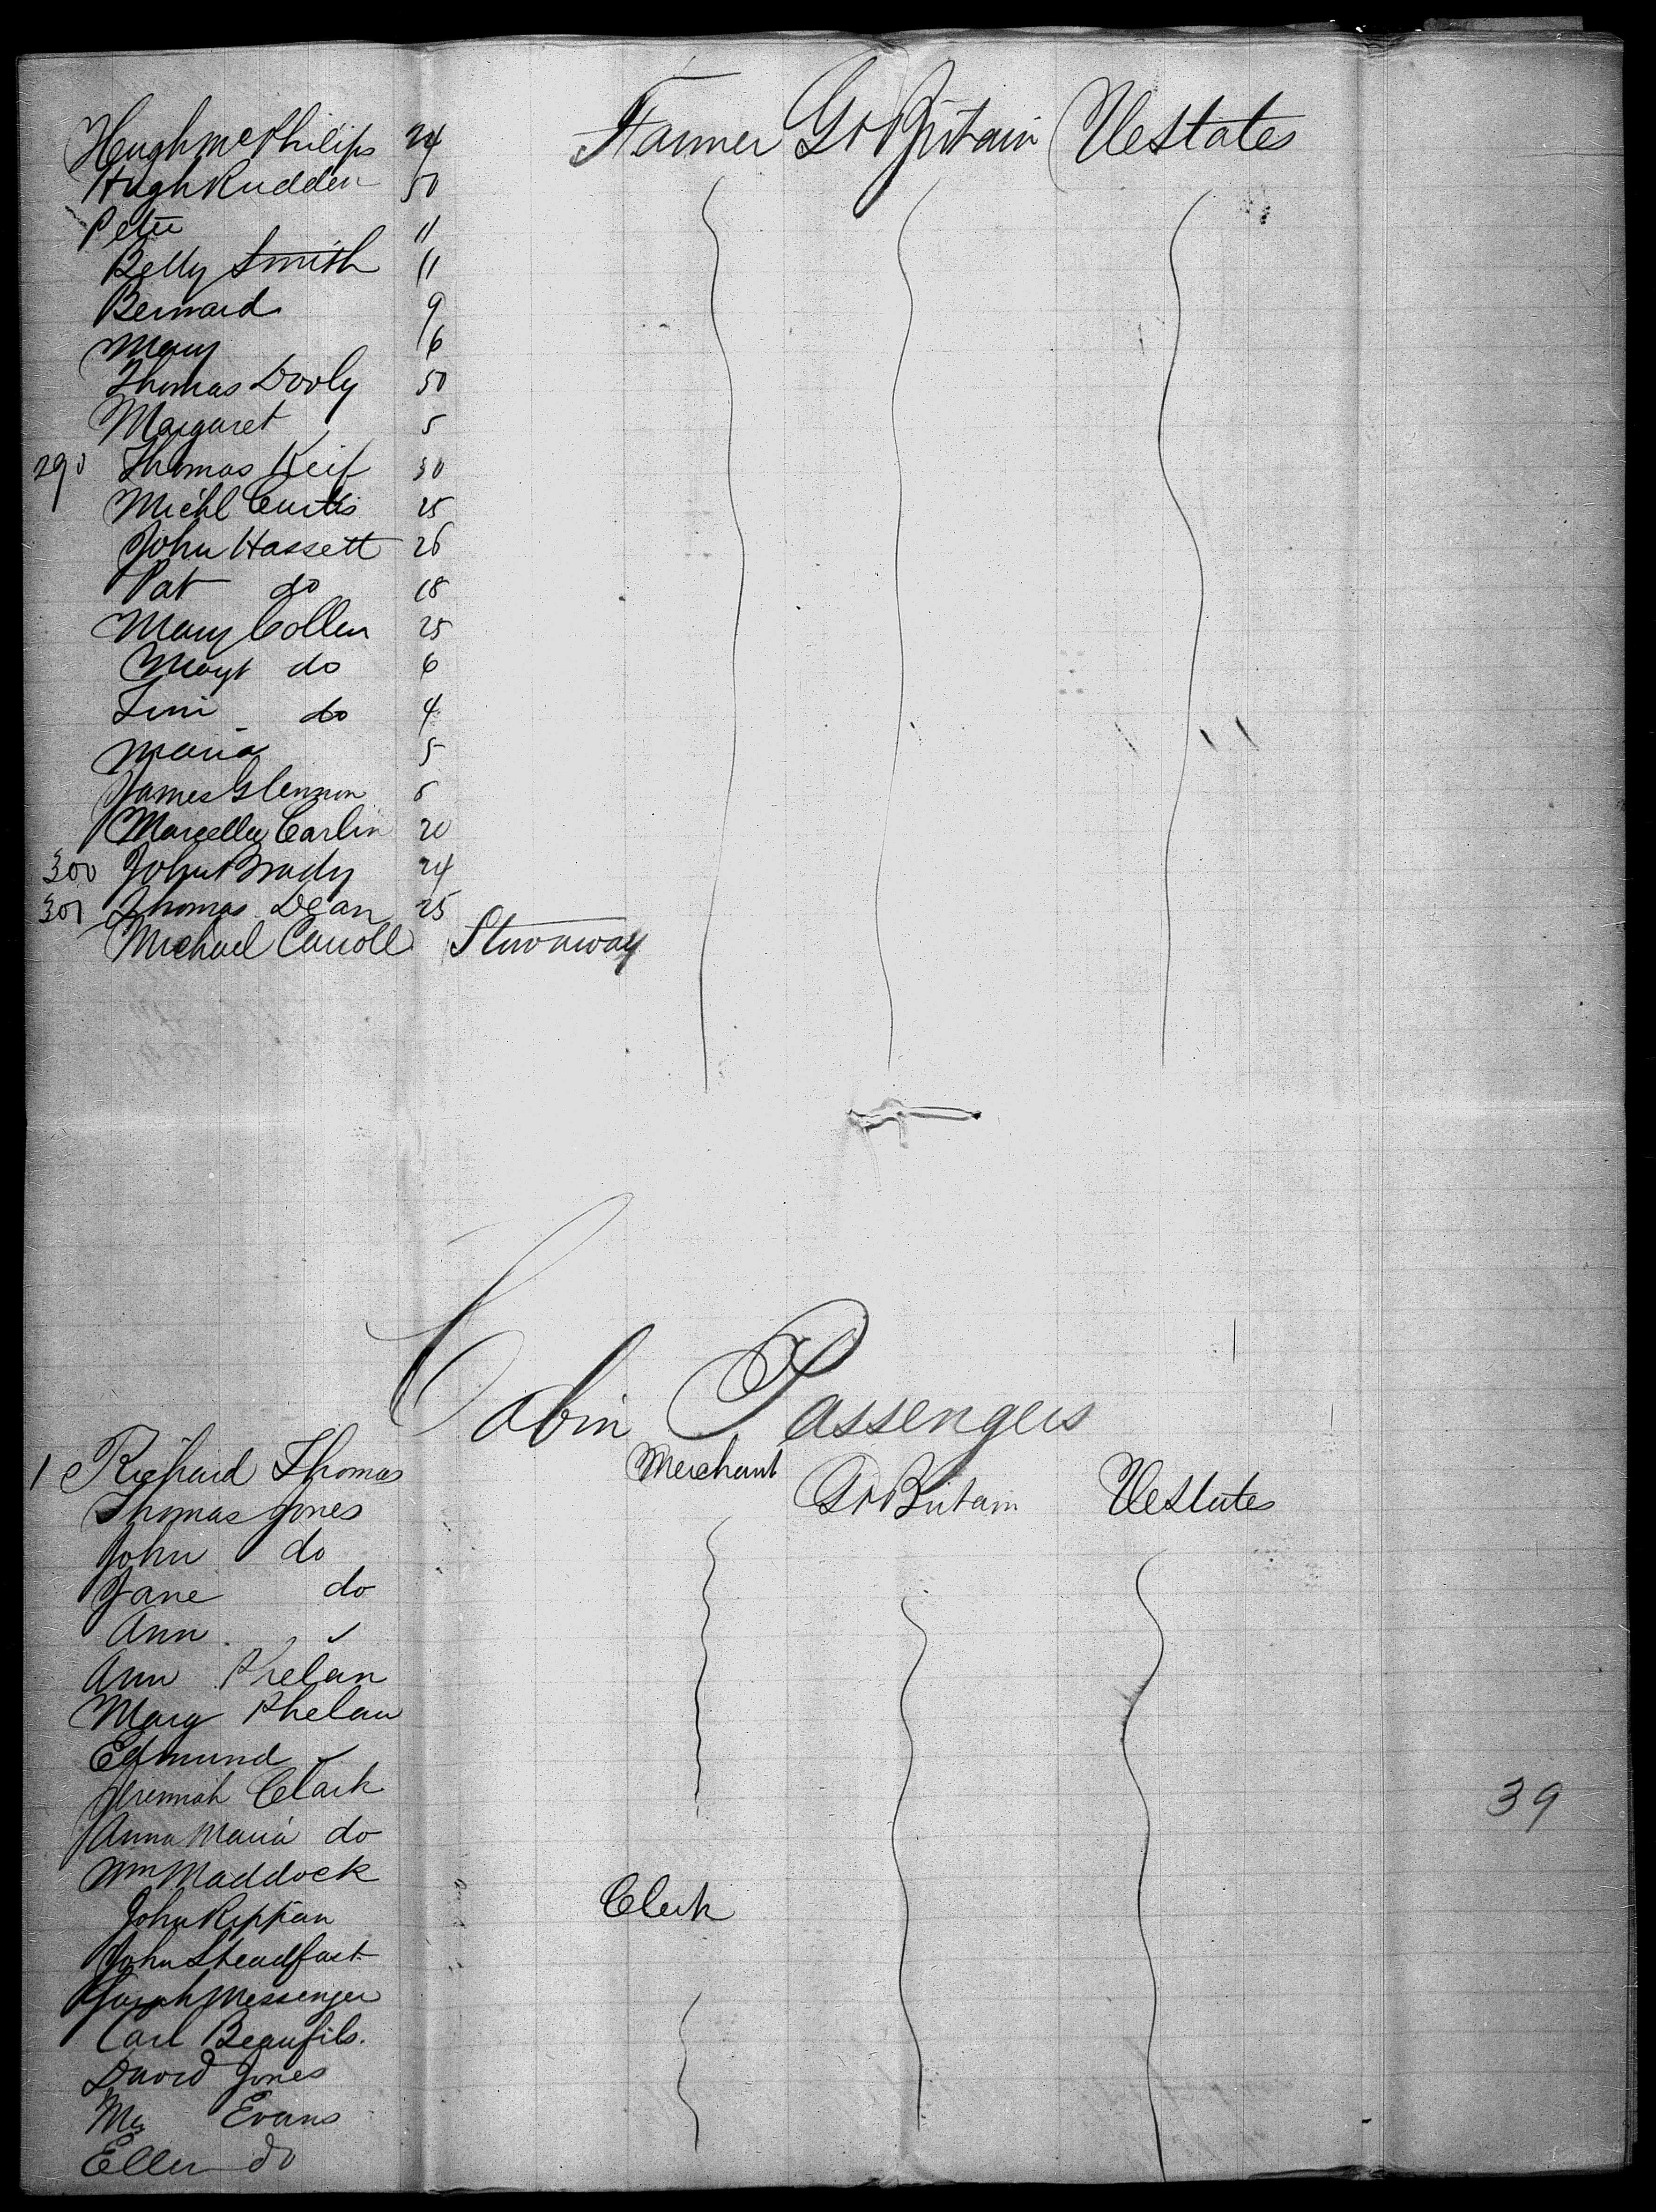 Hugh McPhilips 24 Farmer Gt Britain Ue States
Hugh Rudden 50
Peter 11
Belly Smith 11
Bernard 9
Mary 6
Thomas Dooly 50
Margaret 5
290 Thomas Keif 30
Michl Curtis 25
John Hassett 26
Pat do 18
Mary Collen 25
Margt do 6
do 4
Maria 5
James Glennon 5
Marcella Carlin 20
300 John Brady 24
301 Thomas Dean 25
Michael Carroll Stowaway
Cabin Passengers
1 Richard Thomas Merchant Gt Britain Ue States
Thomas Jones
John do
Jane do
Ann
Ann Phelan
Mary Phelan
Edmund
Jeremiah Clark 39
Anna Maria do
Wm Maddock
John Rippan Clerk
John Steadfast
Sarah Messenger
Carl Beaufils.
David Jones
Evans
Ellen do